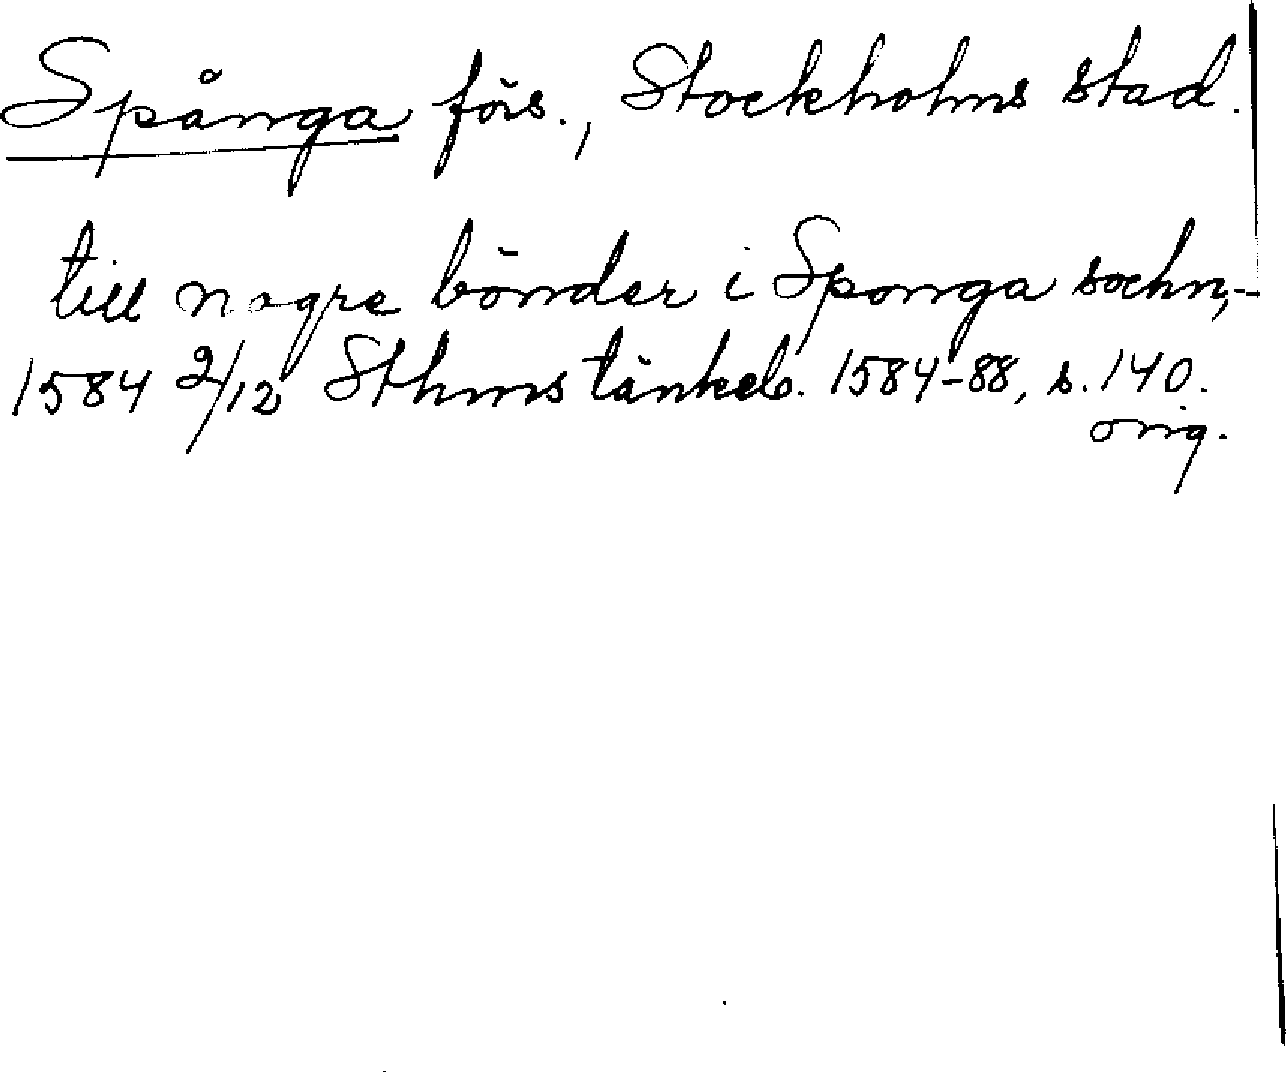 Spånga förs., Stockholms stad.
till nogre bönder i Sponga sochn,-
1584 2/12 Sthms tänkeb. 1584-88, s. 140.
orig.